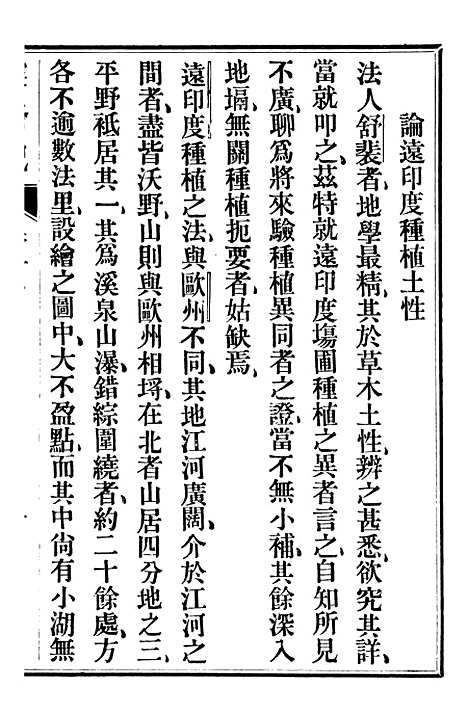 論遠印度種植土性
法人舒裴者、地學最精、其於草木土性、辨之甚悉、欲究其詳、
當就叩之、茲特就遠印度塲圃種植之異者言之、自知所見
不廣、聊爲將來驗種植異同者之證、當不無小補、其餘深入
地塥、無關種植扼要者、姑缺焉、
遠印度種植之法、與歐州不同、其地江河廣闊、介於江河之
間者、盡皆沃野、山則與歐州相埒、在北者山居四分地之三、
平野祗居其一、其爲溪泉山瀑、錯綜圍繞者、約二十餘處、方
各不逾數法里、設繪之圖中、大不盈點、而其中尙有小湖無